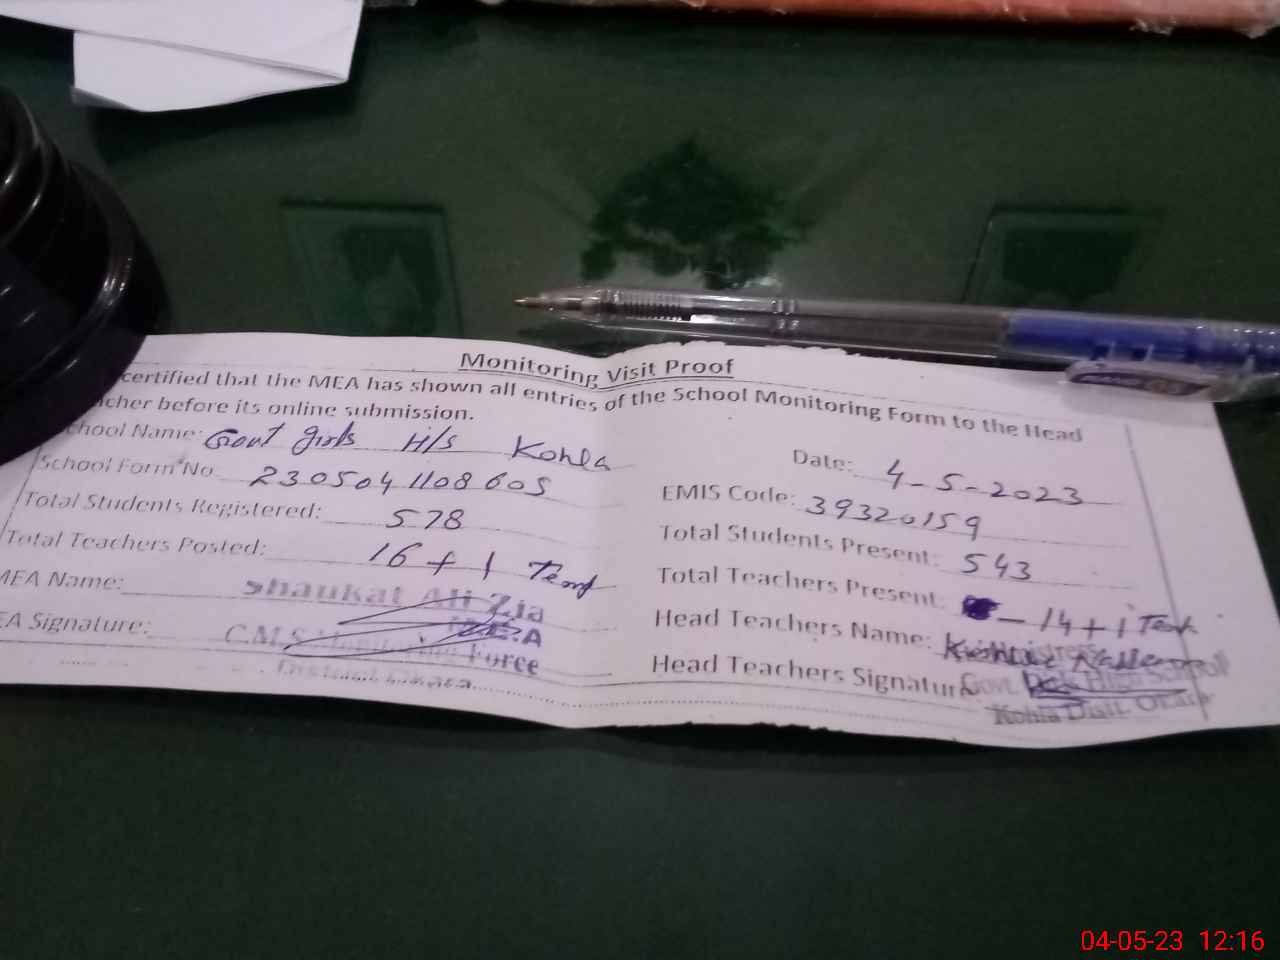 Monitoring Visit Proof
certified that the MEA has shown all entries of the School Monitoring Form to the Head
cher before its online submission.
chool Name: Govt girls H/S Kohla
Date: 4-5-2023
School Form No. 2305041108605
EMIS Code: 39320159
Total Students Registered: 578
Total Students Present: 543
Total Teachers Posted: 16 + 1 Temp
Total Teachers Present: - 14 + 1 Temp
MEA Name: Shaukat Ali Zia
Head Teachers Name:
EA Signature: C.M.S Monitoring Force
Head Teachers Signature
District Okara
Govt. Girls High School
Kohla Distt. Okara
04-05-23 12:16